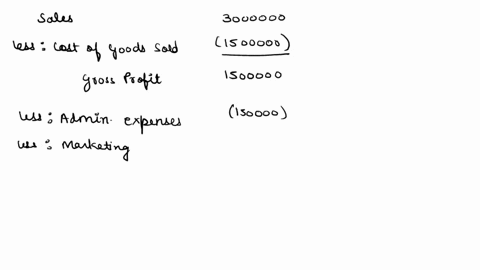 Sales 3000000
Less: Cost of goods sold (1500000)
Gross Profit 1500000
Less: Admin. expenses (150000)
Less: Marketing